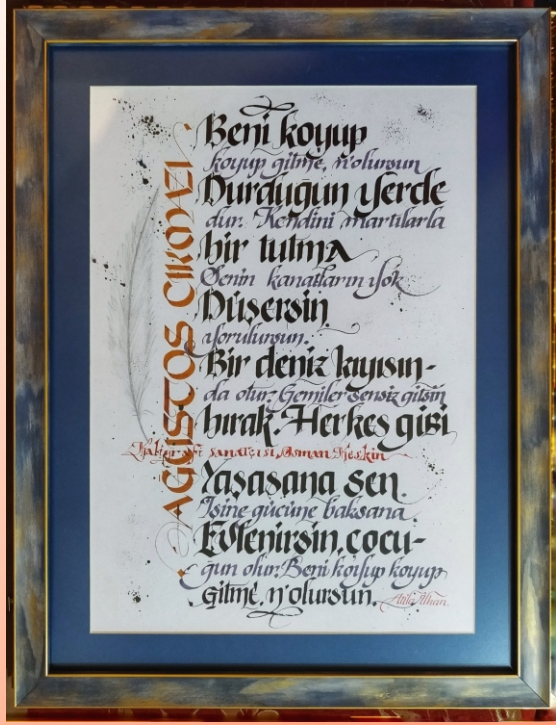 AĞUSTOS ÇIKMAZI
Beni koyup
koyup gitme, n'olursun
Durduğun yerde
dur. Kendini martılarla
bir tutma
Senin kanatların yok
Düşersin
yorulursun.
Bir deniz kıyısın-
da otur. Gemiler sensiz gitsin
bırak. Herkes gibi
sanatçısı Osman Keskin
Yaşasana sen.
İşine gücüne baksana
Evlenirsin, çocu-
ğun olur. Beni koyup koyup
gitme, n'olursun.
Atila İlhan